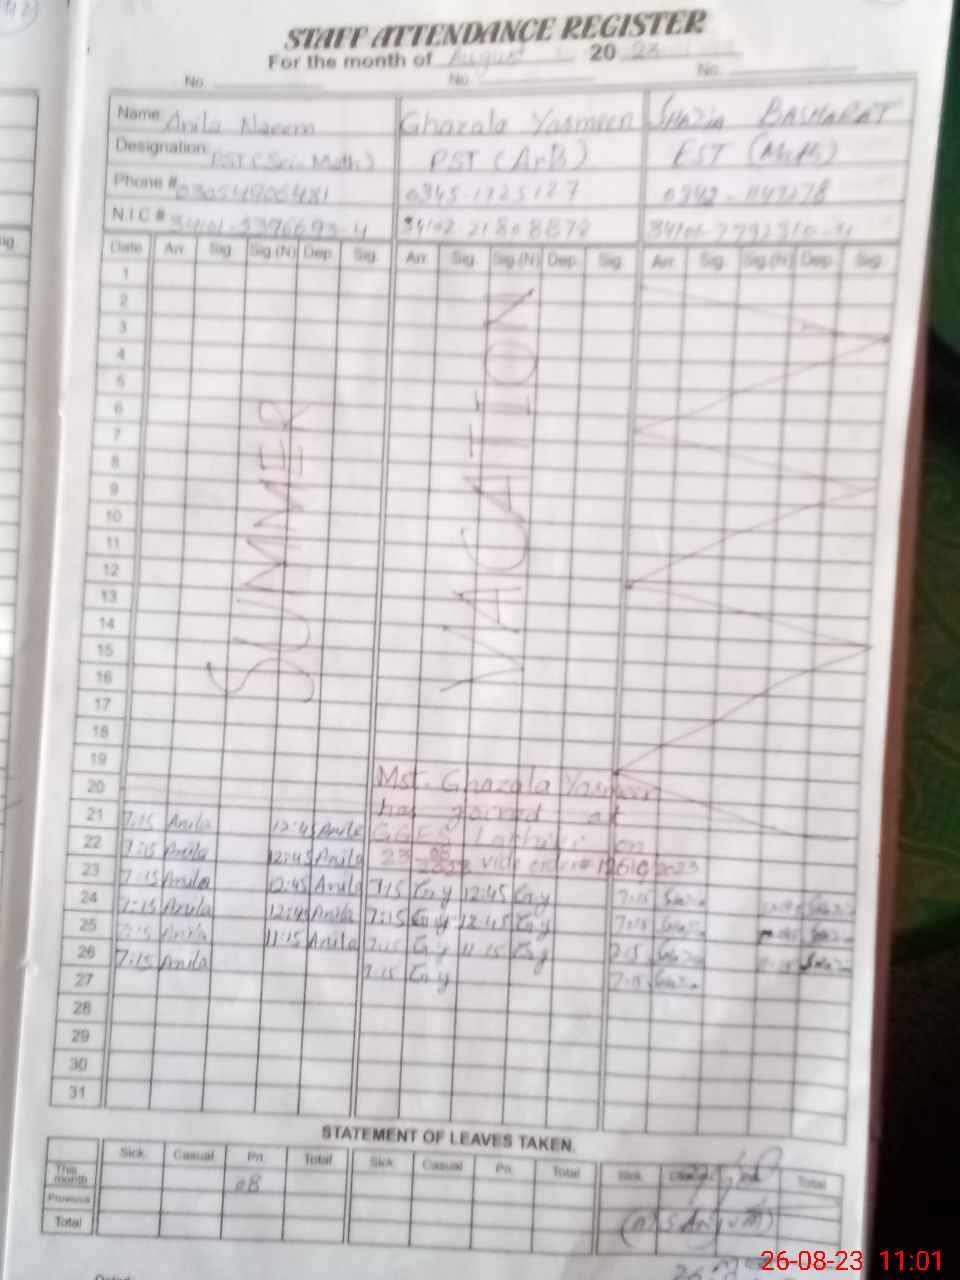 STAFF ATTENDANCE REGISTER
For the month of August 2023
No. No. No.
Name: Anila Naeem Ghazala Yasmeen Shazia BASHARAT
Designation: PST (Sci. Math) PST (Arb) EST (Math)
Phone # 03054906481 0345-1725127 0342-
N.I.C # 34101-5396693-4 34102-2180887
Date Arr. Sig. Sig.(N) Dep. Sig. Arr. Sig. Sig.(N) Dep. Sig. Arr. Sig. Sig.(N) Dep. Sig.
1
2
3
4
5
6
7
8
9
10
11
12
13
14
15
16
17
18
19
SUMMER VACATION
20 Mst. Ghazala Yasmeen
has joined at
21 7:15 Anila 12:45 Anila GGES on
22 7:15 Anila 12:45 Anila 23 vide order #
23 7:15 Anila 12:45 Anila 7:15 G.y 12:45 G.y 7:15
24 7:15 Anila 12:45 Anila 7:15 G.y 12:45 G.y 7:15
25 7:15 Anila 11:15 Anila 7:15 G.y 11:15 G.y 7:15
26 7:15 Anila 7:15 G.y 7:15
27
28
29
30
31
STATEMENT OF LEAVES TAKEN.
Sick. Casual Pri. Total Sick. Casual Pri. Total Sick. Total
This month 08
Previous
Total
26-08-23 11:01